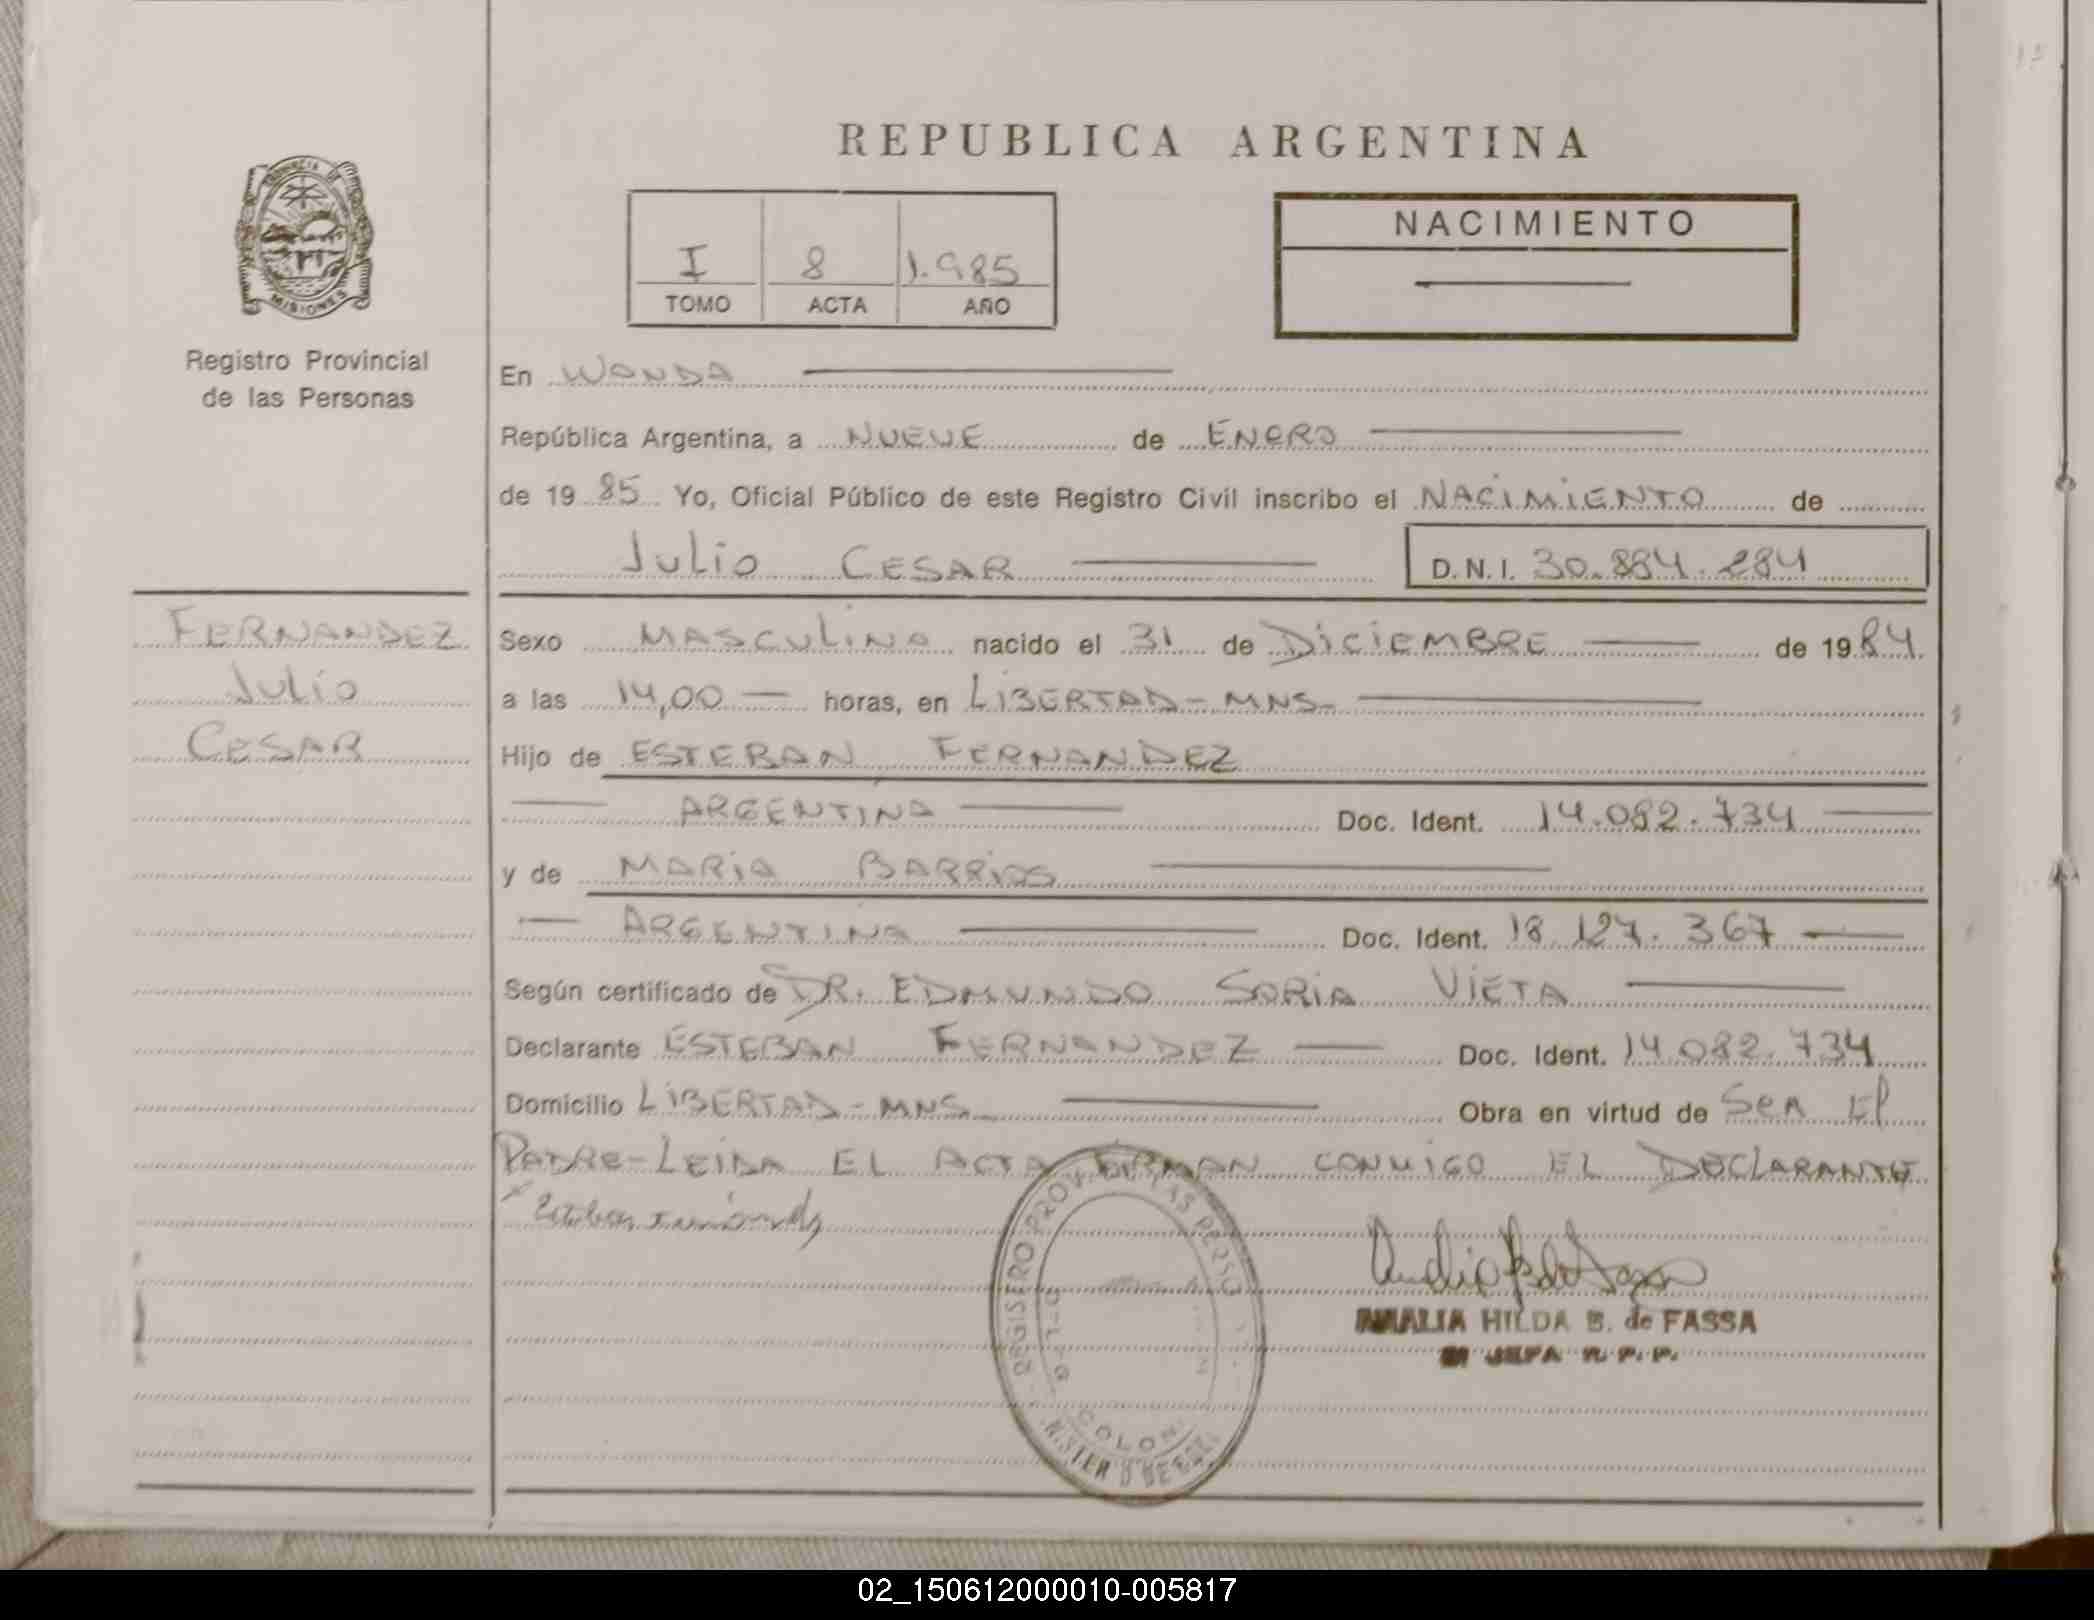 REPUBLICA ARGENTINA
PROVINCIA DE
MISIONES
I 8 1.985
TOMO ACTA AÑO
NACIMIENTO
Registro Provincial
de las Personas
En WANDA
República Argentina, a NUEVE de ENERO
de 19 85 Yo, Oficial Público de este Registro Civil inscribo el NACIMIENTO de
JULIO CESAR D.N.I. 30.884.284
FERNANDEZ
JULIO
CESAR
Sexo MASCULINO nacido el 31 de DICIEMBRE de 1984
a las 14,00 horas, en LIBERTAD-MNS
Hijo de ESTEBAN FERNANDEZ
ARGENTINA Doc. Ident. 14.082.734
y de MARIA BARRIOS
ARGENTINA Doc. Ident. 18.127.367
Según certificado de DR. EDMUNDO SORIA VIETA
Declarante ESTEBAN FERNANDEZ Doc. Ident. 14.082.734
Domicilio LIBERTAD-MNS Obra en virtud de Ser El
PADRE-LEIDA EL ACTA FIRMAN CONMIGO EL DECLARANTE
AMALIA HILDA B. de FASSA
JEFA R. P. P.
02_150612000010-005817